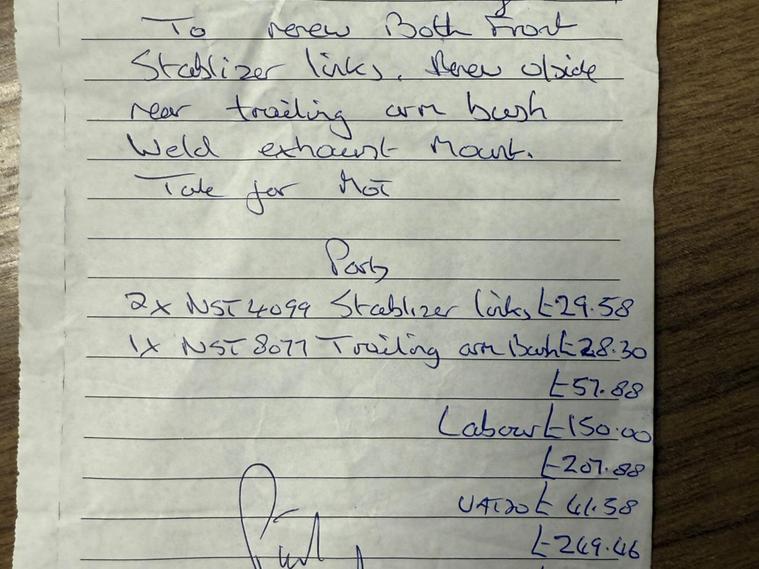 To renew Both Front
Stablizer links. Renew o/side
rear trailing arm bush
Weld exhaust Mount.
Take for MOT
Parts
2x NST4099 Stablizer links £29.58
1x NST8077 Trailing arm Bush £28.30
£57.88
Labour £150.00
£207.88
VAT20 £ 41.58
£249.46